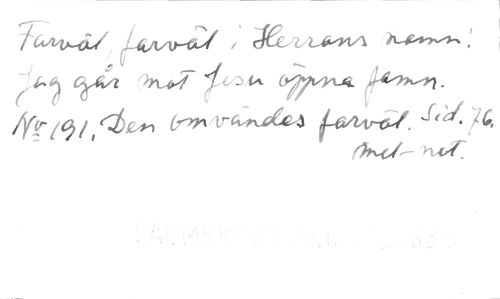 Farväl, farväl i Herrans namn!
Jag går mot Jesu öppna famn.
No 191. Den omvändes farväl. Sid. 76.
Mel-not.